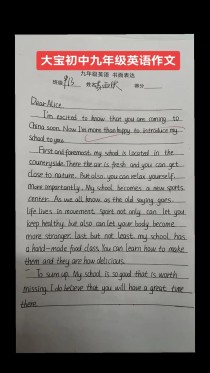 大宝初中九年级英语作文
九年级英语 书面表达
班级 姓名 得分
Dear Alice,
I'm excited to know that you are coming to
China soon. Now I'm more than happy to introduce my
school to you.
First and foremost, my school is located in the
countryside. There the air is fresh and you can get
close to nature. But also, you can relax yourself.
More importantly, My school becomes a new sports
center. As we all know, as the old saying goes,
life lives in movement. Sport not only can let you
keep healthy, but also can let your body become
more stronger. last but not least, my school has
a hand-made food class. You can learn how to make
them and they are how delicious.
To sum up, My school is so good that is worth
missing. I do believe that you will have a great time
there.